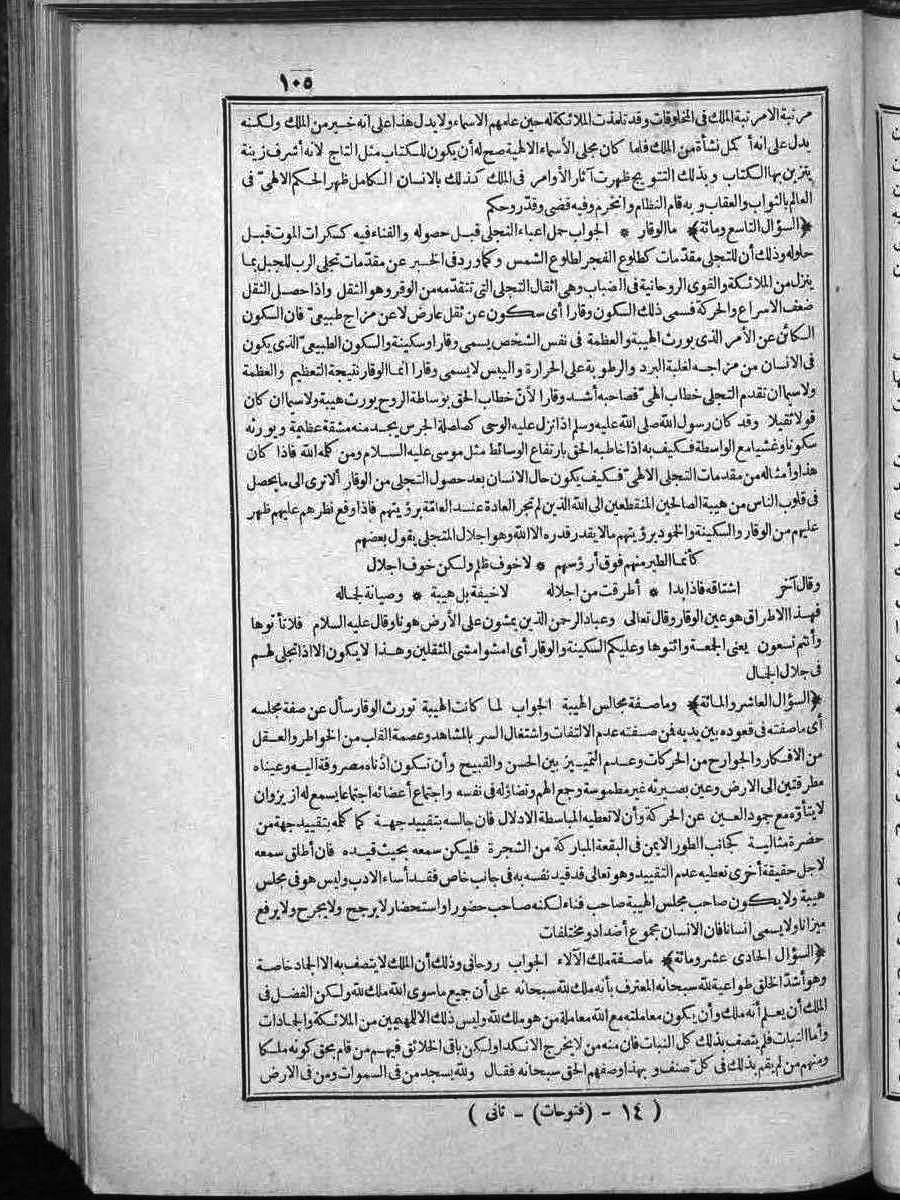 ١٠٥
مرتبة الامرتبة الملك فى المخلوقات وقد تلمذت الملائكة له حين علمهم الاسماء ولا يدل هذا على انه خير من الملك ولكنه
يدل على انه أكمل نشأة من الملك فلما كان مجلى الأسماء الالهية صح له أن يكون للكتاب مثل التاج لانه أشرف زينة
يتزين بها الكتاب وبذلك التتويج ظهرت آثار الأوامر فى الملك كذلك بالانسان الكامل ظهر الحكم الالهىّ فى
العالم بالثواب والعقاب وبه قام النظام وانخرم وفيه قضى وقدّر وحكم
﴿السؤال التاسع ومائة﴾ ما الوقار * الجواب حمل اعباء التجلى قبل حصوله والفناء فيه كسكرات الموت قبل
حلوله وذلك أن للتجلى مقدّمات كطلوع الفجر لطلوع الشمس وكما ورد فى الخبر عن مقدّمات تجلى الرب للجبل بما
ينزل من الملائكة والقوى الروحانية فى الضباب وهى اثقال التجلى التى تتقدّمه من الوقر وهو الثقل واذا حصل الثقل
ضعف الاسراع والحركة فسمى ذلك السكون وقارا أى سكون عن ثقل عارض لا عن مزاج طبيعىّ فان السكون
الكائن عن الأمر الذى يورث الهيبة والعظمة فى نفس الشخص يسمى وقارا وسكينة والسكون الطبيعىّ الذى يكون
فى الانسان من مزاجه لغلبة البرد والرطوبة على الحرارة واليبس لا يسمى وقارا انما الوقار نتيجة التعظيم والعظمة
ولا سيما ان تقدم التجلى خطاب الهىّ فصاحبه أشد وقارا لأنّ خطاب الحق بوساطة الروح يورث هيبة ولا سيما ان كان
قولا ثقيلا وقد كان رسول الله صلى الله عليه وسلم اذا نزل عليه الوحى كصلصلة الجرس يجد منه مشقة عظيمة ويورثه
سكونا وغشيا مع الواسطة فكيف به اذا خاطبه الحق بارتفاع الوسائط مثل موسى عليه السلام ومن كلمه الله فاذا كان
هذا وأمثاله من مقدمات التجلى الالهىّ فكيف يكون حال الانسان بعد حصول التجلى من الوقار ألا ترى الى ما يحصل
فى قلوب الناس من هيبة الصالحين المنقطعين الى الله الذين لم تجر العادة عند العامّة برؤيتهم فاذا وقع نظرهم عليهم ظهر
عليهم من الوقار والسكينة والخمود برؤيتهم ما لا يقدر قدره الا الله وهو اجلال المتجلى يقول بعضهم
كأنما الطير منهم فوق أرؤسهم * لا خوف ظلم ولكن خوف اجلال
وقال آخر اشتاقه فاذا بدا * أطرقت من اجلاله لا خيفة بل هيبة * وصيانة لجماله
فهذا الاطراق هو عين الوقار وقال تعالى وعباد الرحمن الذين يمشون على الأرض هونا وقال عليه السلام فلا تأتوها
وأنتم تسعون يعنى الجمعة وائتوها وعليكم السكينة والوقار أى امشوا مشى المثقلين وهذا لا يكون الا اذا تجلى لهم
فى جلال الجمال
﴿السؤال العاشر والمائة﴾ وما صفة مجالس الهيبة الجواب لما كانت الهيبة تورث الوقار سأل عن صفة مجلسه
أى ما صفته فى قعوده بين يديه فمن صفته عدم الالتفات واشتغال السر بالمشاهد وعصمة القلب من الخواطر والعقل
من الافكار والجوارح من الحركات وعدم التمييز بين الحسن والقبيح وأن تكون اذناه مصروفة اليه وعيناه
مطرقتين الى الارض وعين بصيرته غير مطموسة وجمع الهم وتضاؤله فى نفسه واجتماع أعضائه اجتماعا يسمع له ازيز وان
لا يتأوّه مع جمود العين عن الحركة وأن لا تعطيه المباسطة الادلال فان جالسه بتقييد جهة كما كلمه بتقييد جهة من
حضرة مثالية كجانب الطور الايمن فى البقعة المباركة من الشجرة فليكن سمعه بحيث قيده فان أطلق سمعه
لاجل حقيقة أخرى تعطيه عدم التقييد وهو تعالى قد قيد نفسه به فى جانب خاص فقد أساء الادب وليس هو فى مجلس
هيبة ولا يكون صاحب مجلس الهيبة صاحب فناء لكنه صاحب حضور او استحضار لا يرجح ولا يجرح ولا يرفع
ميزانا ولا يسمى انسانا فان الانسان مجموع أضداد ومختلفات
﴿السؤال الحادى عشر ومائة﴾ ما صفة ملك الآلاء الجواب روحانى وذلك أن الملك لا يتصف به الا الجماد خاصة
وهو أشدّ الخلق طواعية لله سبحانه المعترف بأنه ملك لله سبحانه على أن جميع ما سوى الله ملك لله ولكن الفضل فى
الملك أن يعلم أنه ملك وأن يكون معاملته مع الله معاملة من هو ملك لله وليس ذلك الا للمهيمين من الملائكة والجمادات
وأما النبات فلم يتصف بذلك كل النبات فان منه من لا يخرج الا نكدا ولكن باقى الخلائق فيهم من قام بحق كونه ملكا
ومنهم من لم يقم بذلك فى كلّ صنف وبهذا وصفهم الحق سبحانه فقال ولله يسجد من فى السموات ومن فى الارض
( ١٤ - (فتوحات) - ثانى )